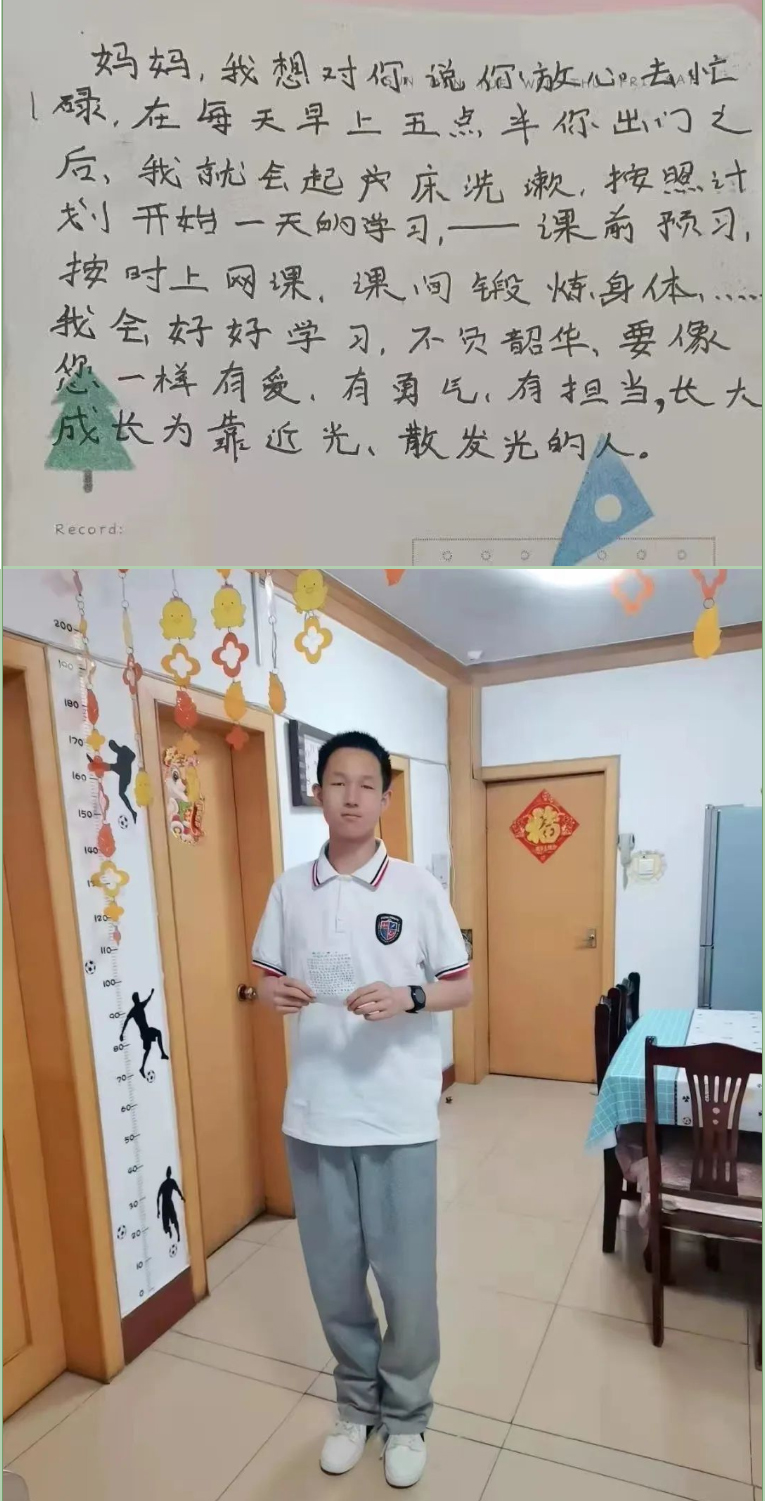 妈妈，我想对你说你放心去忙
碌，在每天早上五点半你出门之
后，我就会起床洗漱，按照计
划开始一天的学习，——课前预习，
按时上网课，课间锻炼身体……
我会好好学习，不负韶华、要像
您一样有爱、有勇气、有担当，长大
成长为靠近光、散发光的人。
Record:
200
190
180
170
160
150
140
120
110
100
90
80
70
60
50
40
30
20
10
0
福